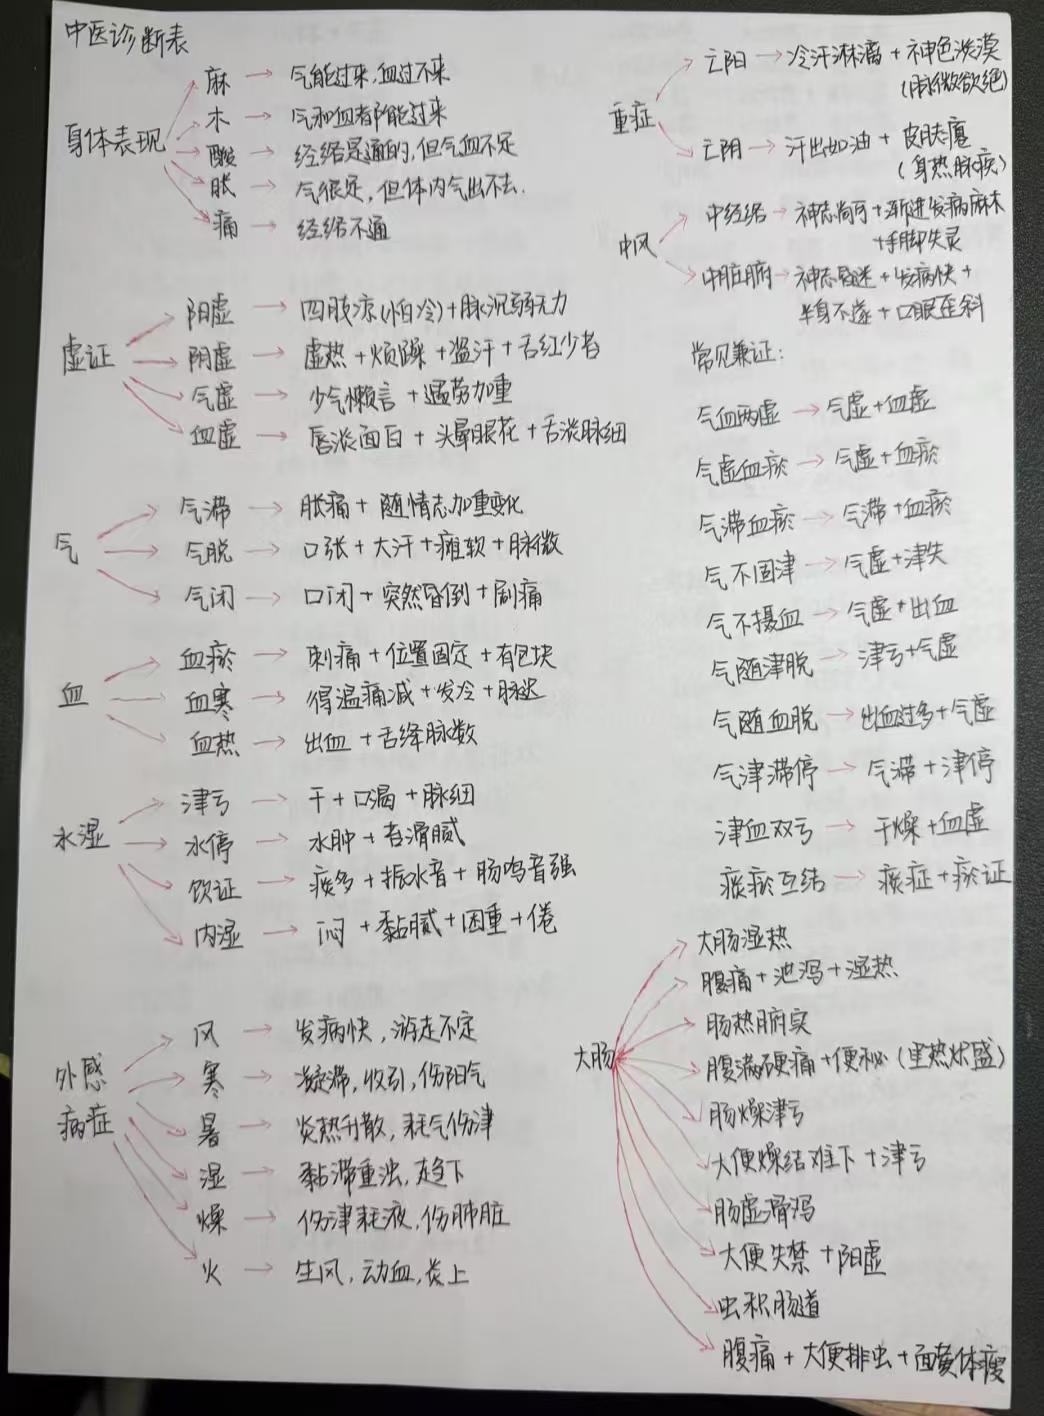 中医诊断表
身体表现
麻 → 气能过来,血过不来
木 → 气和血都不能过来
酸 → 经络是通的,但气血不足
胀 → 气很足,但体内气出不去.
痛 → 经络不通
虚证
阳虚 → 四肢凉(怕冷)+脉沉弱无力
阴虚 → 虚热+烦躁+盗汗+舌红少苔
气虚 → 少气懒言+遇劳加重
血虚 → 唇淡面白+头晕眼花+舌淡脉细
气
气滞 → 胀痛+随情志加重变化
气脱 → 口张+大汗+瘫软+脉微
气闭 → 口闭+突然昏倒+剧痛
血
血瘀 → 刺痛+位置固定+有包块
血寒 → 得温痛减+发冷+脉迟
血热 → 出血+舌绛脉数
水湿
津亏 → 干+口渴+脉细
水停 → 水肿+苔滑腻
饮证 → 痰多+振水音+肠鸣音强
内湿 → 闷+黏腻+困重+倦
外感
病症
风 → 发病快,游走不定
寒 → 凝滞,收引,伤阳气
暑 → 炎热升散,耗气伤津
湿 → 黏滞重浊,趋下
燥 → 伤津耗液,伤肺脏
火 → 生风,动血,炎上
重症
亡阳 → 冷汗淋漓+神色淡漠
(脉微欲绝)
亡阴 → 汗出如油+皮肤瘪
(身热脉疾)
中风
中经络 → 神志尚可+渐进发病麻木
+手脚失灵
中脏腑 → 神志昏迷+发病快+
半身不遂+口眼歪斜
常见兼证:
气血两虚 → 气虚+血虚
气虚血瘀 → 气虚+血瘀
气滞血瘀 → 气滞+血瘀
气不固津 → 气虚+津失
气不摄血 → 气虚+出血
气随津脱 → 津亏+气虚
气随血脱 → 出血过多+气虚
气津滞停 → 气滞+津停
津血双亏 → 干燥+血虚
痰瘀互结 → 痰症+瘀证
大肠
大肠湿热
腹痛+泄泻+湿热
肠热腑实
腹满硬痛+便秘(里热炽盛)
肠燥津亏
大便燥结难下+津亏
肠虚滑泻
大便失禁+阳虚
虫积肠道
腹痛+大便排虫+面黄体瘦